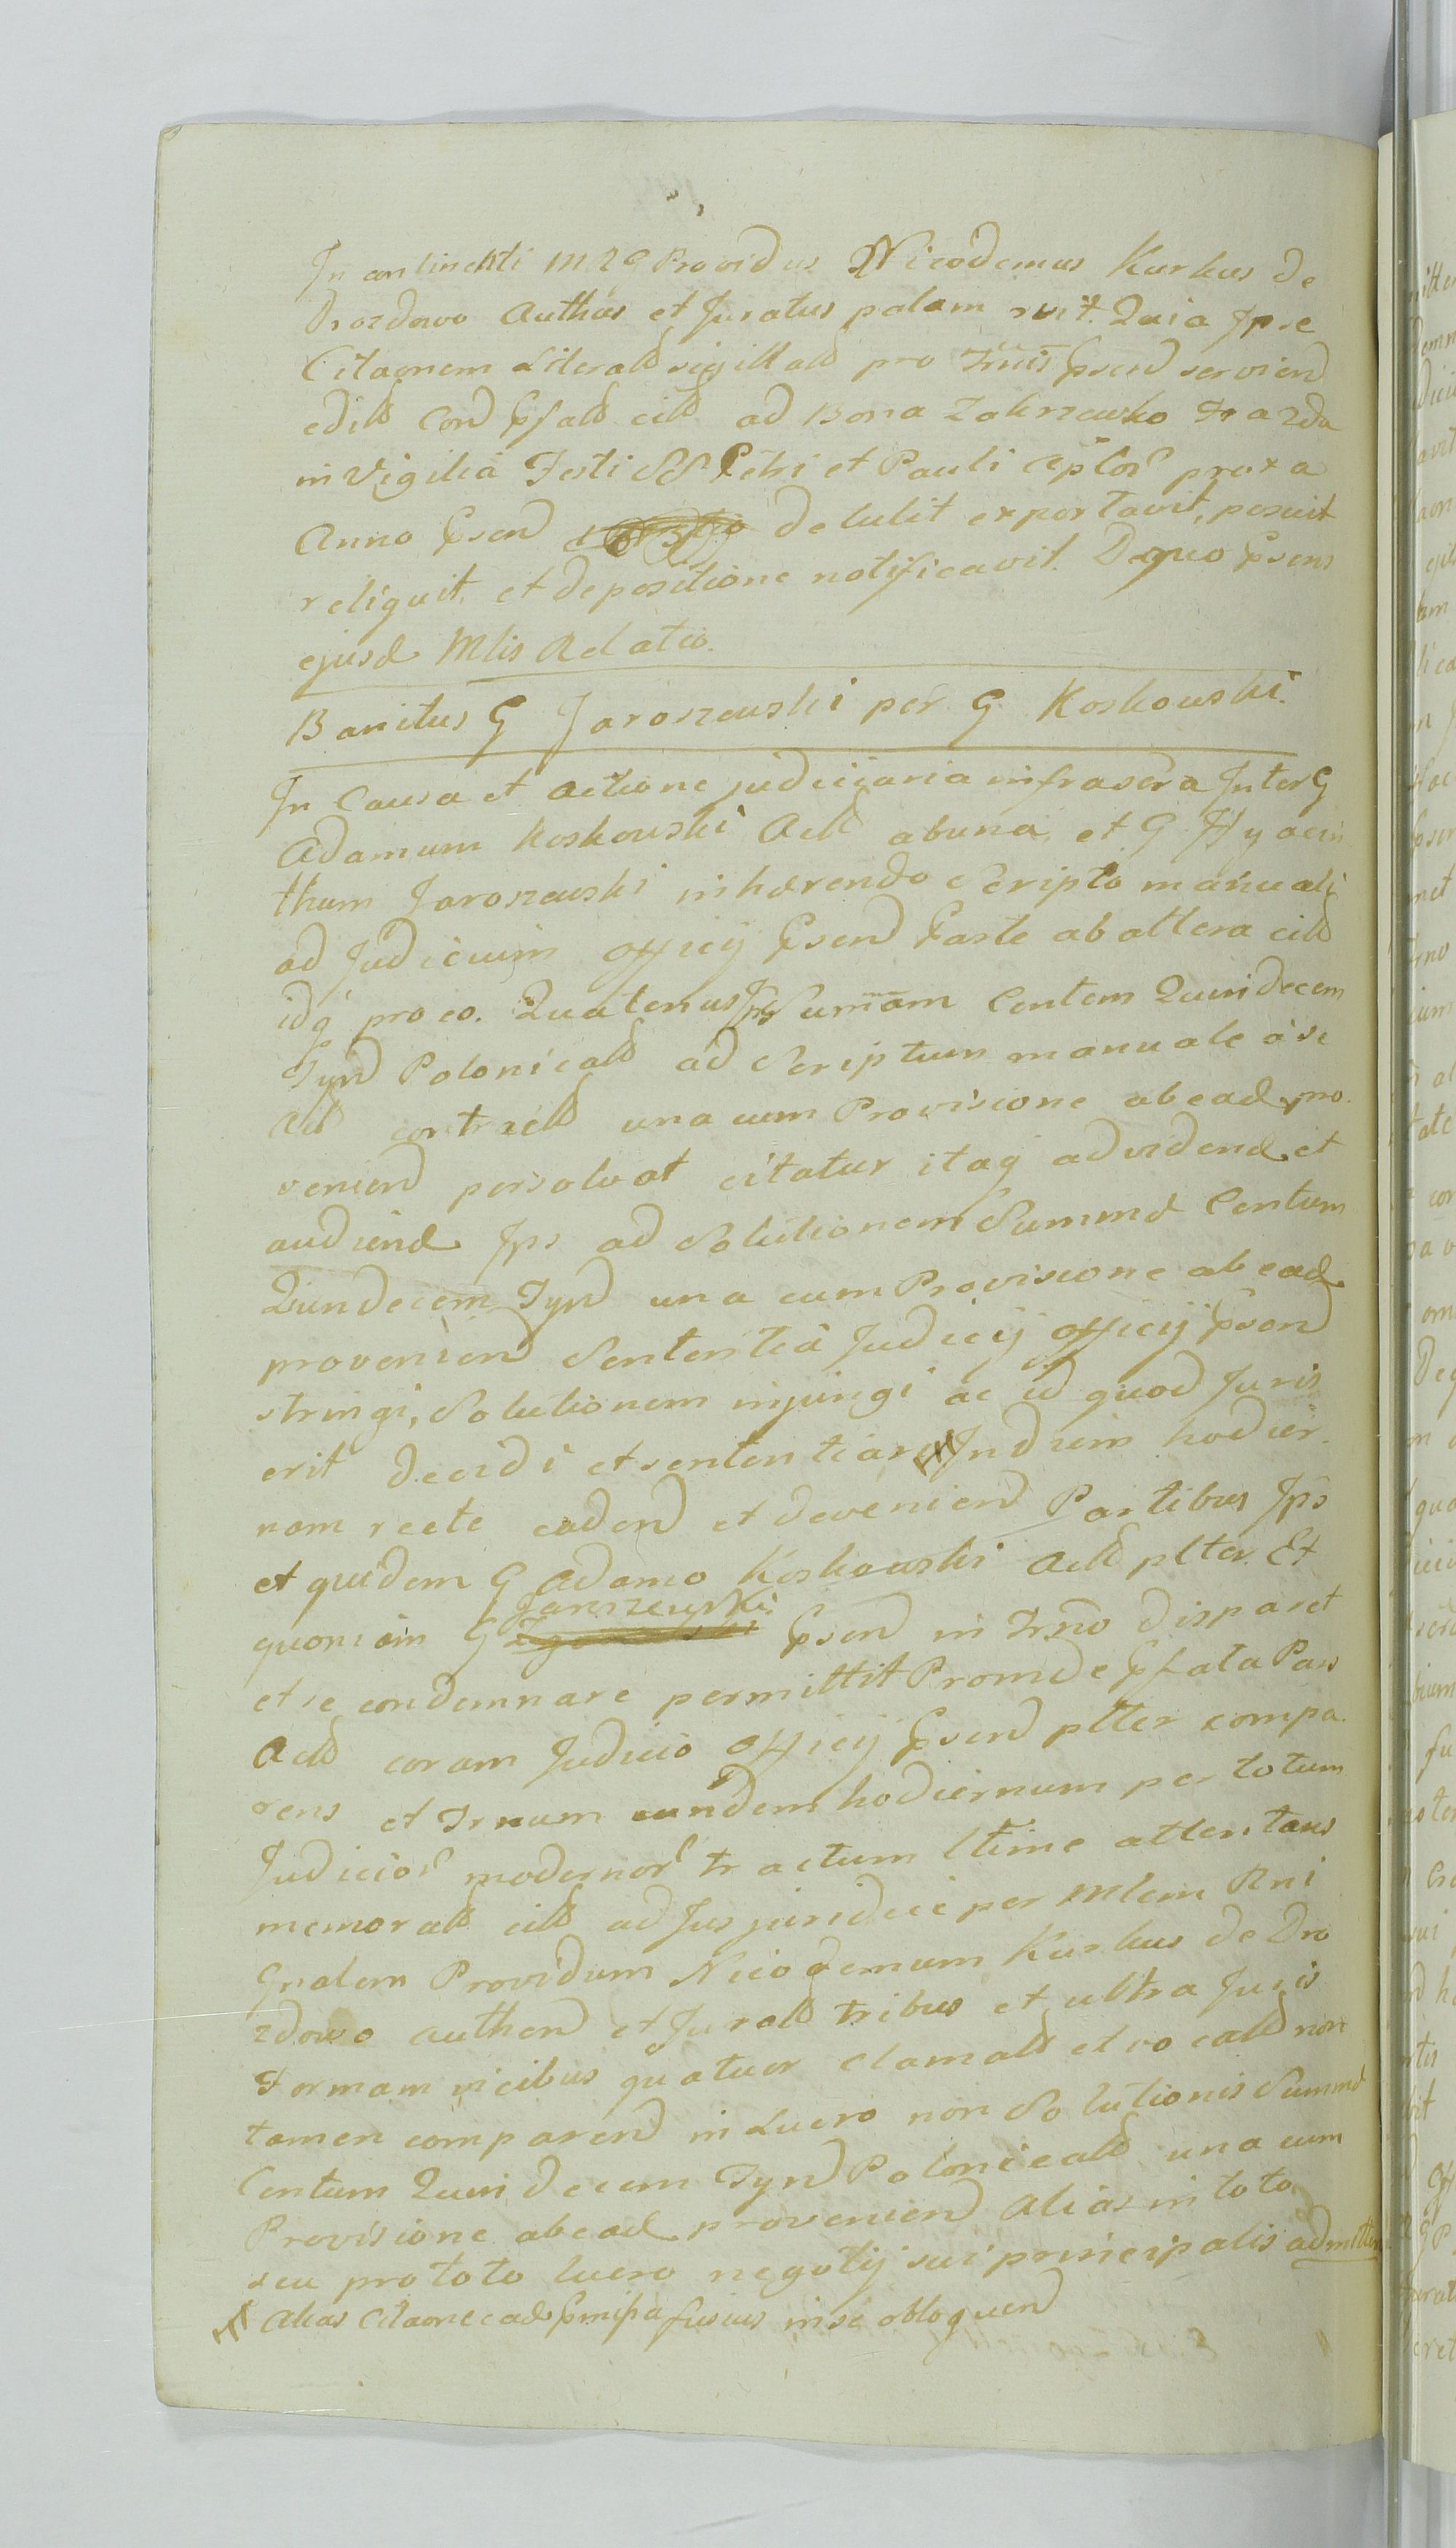 In continenti M R G Providus Nicodemus Kurkus de
Drozdowo Authus et Juratus palam rvit. Quia Ipse
Citaonem Literald sigillald pro Trnis Psend serviend
edild Cond Psald cild ad Bona Zakrzewko
in Vigilia Festi SS Petri et Pauli Aplor proxa
Anno Psend detulit exportavit, posuit
reliquit et depositione notificavit. De quo Psens
ejusd Mlis Relatio.
Banitus G Jaroszewski per G Koskowski.
In Causa et actione judiciaria infrascra Inter G
Adamum Koskowski Actt abuna et G Hyacin
thum Jaroszewski inhærendo Scripto manuali
ad Judicium Officij Psend Parte ab altera citt
idq pro eo. Quatenus Ips Sumam Centem Quindecem
Tynd Polonicald ad Scriptum manuale a se
Actt contractt una cum Provisione abead pro
veniend persolvat citatur itaq ad vidend et
audiend Ips ad Solutionem Summæ Centum
Quindecem Tynd una cum Provisione abead
proveniend Sententiâ Judicij Officij Psend
stringi, Solutionem injungi ac id quod Juris
erit decidi et sententiare In diem hodier
nam recte cadend et deveniend Partibus Ips
et quidem G Adamo Koskowski Actt plter. Et
quoniam G Jaroszewski Psend in Trno disparet
et se condemnare permittit Proinde Pfata Pars
Actt coram Judicio Officij Psend plter compa
rens et Trnum eundem hodiernum per totum
Judicior modernor tractum ltime attentans
memorald citt ad Jus juridice per Mlem Rni
Gnalem Providum Nicodemum Kurkus de Dro
zdowo authend et Jurald tribus et ultra Juris
Formam vicibus quatuor clamald et vocald non
tamen comparend in Lucro non Solutionis Summæ
Centum Quindecem Tynd Polonicald una cum
Provisione abead proveniend alias in toto
seu pro toto lucro negotij sui principalis admitten
Alias Citaone ead Pmissa fusius in se obloquend